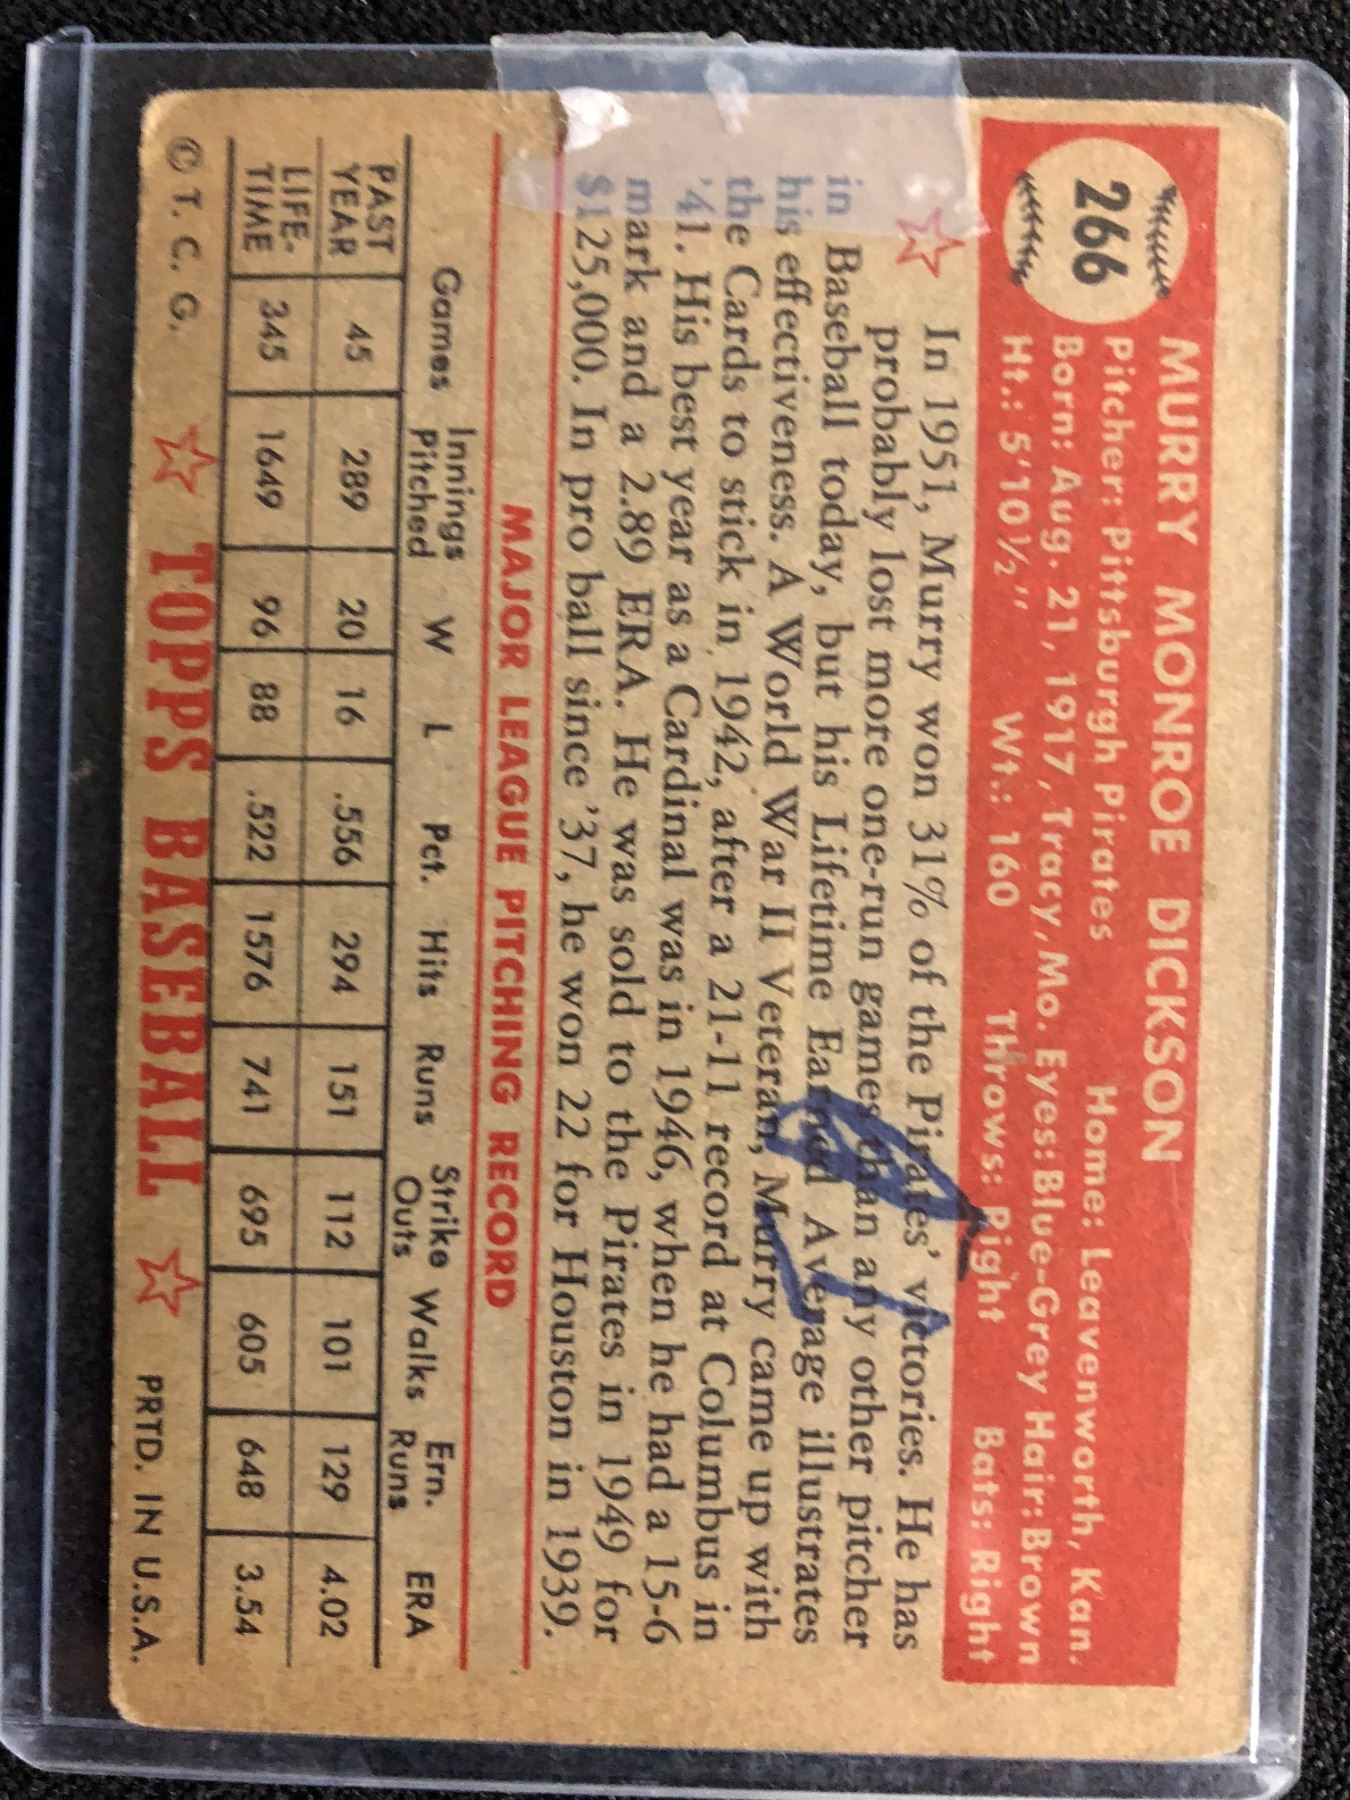 266
MURRY MONROE DICKSON
Pitcher: Pittsburgh Pirates Home: Leavenworth, Kan.
Born: Aug. 21, 1917, Tracy, Mo. Eyes: Blue-Grey Hair: Brown
Ht.: 5'10½" Wt.: 160 Throws: Right Bats: Right
In 1951, Murry won 31% of the Pirates' victories. He has
probably lost more one-run games than any other pitcher
in Baseball today, but his Lifetime Earned Average illustrates
his effectiveness. A World War II Veteran, Murry came up with
the Cards to stick in 1942, after a 21-11 record at Columbus in
'41. His best year as a Cardinal was in 1946, when he had a 15-6
mark and a 2.89 ERA. He was sold to the Pirates in 1949 for
$125,000. In pro ball since '37, he won 22 for Houston in 1939.
MAJOR LEAGUE PITCHING RECORD
Games Innings Pitched W L Pct. Hits Runs Strike Outs Walks Ern. Runs ERA
PAST YEAR 45 289 20 16 .556 294 151 112 101 129 4.02
LIFE-TIME 345 1649 96 88 .522 1576 741 695 605 648 3.54
© T. C. G. TOPPS BASEBALL PRTD. IN U.S.A.